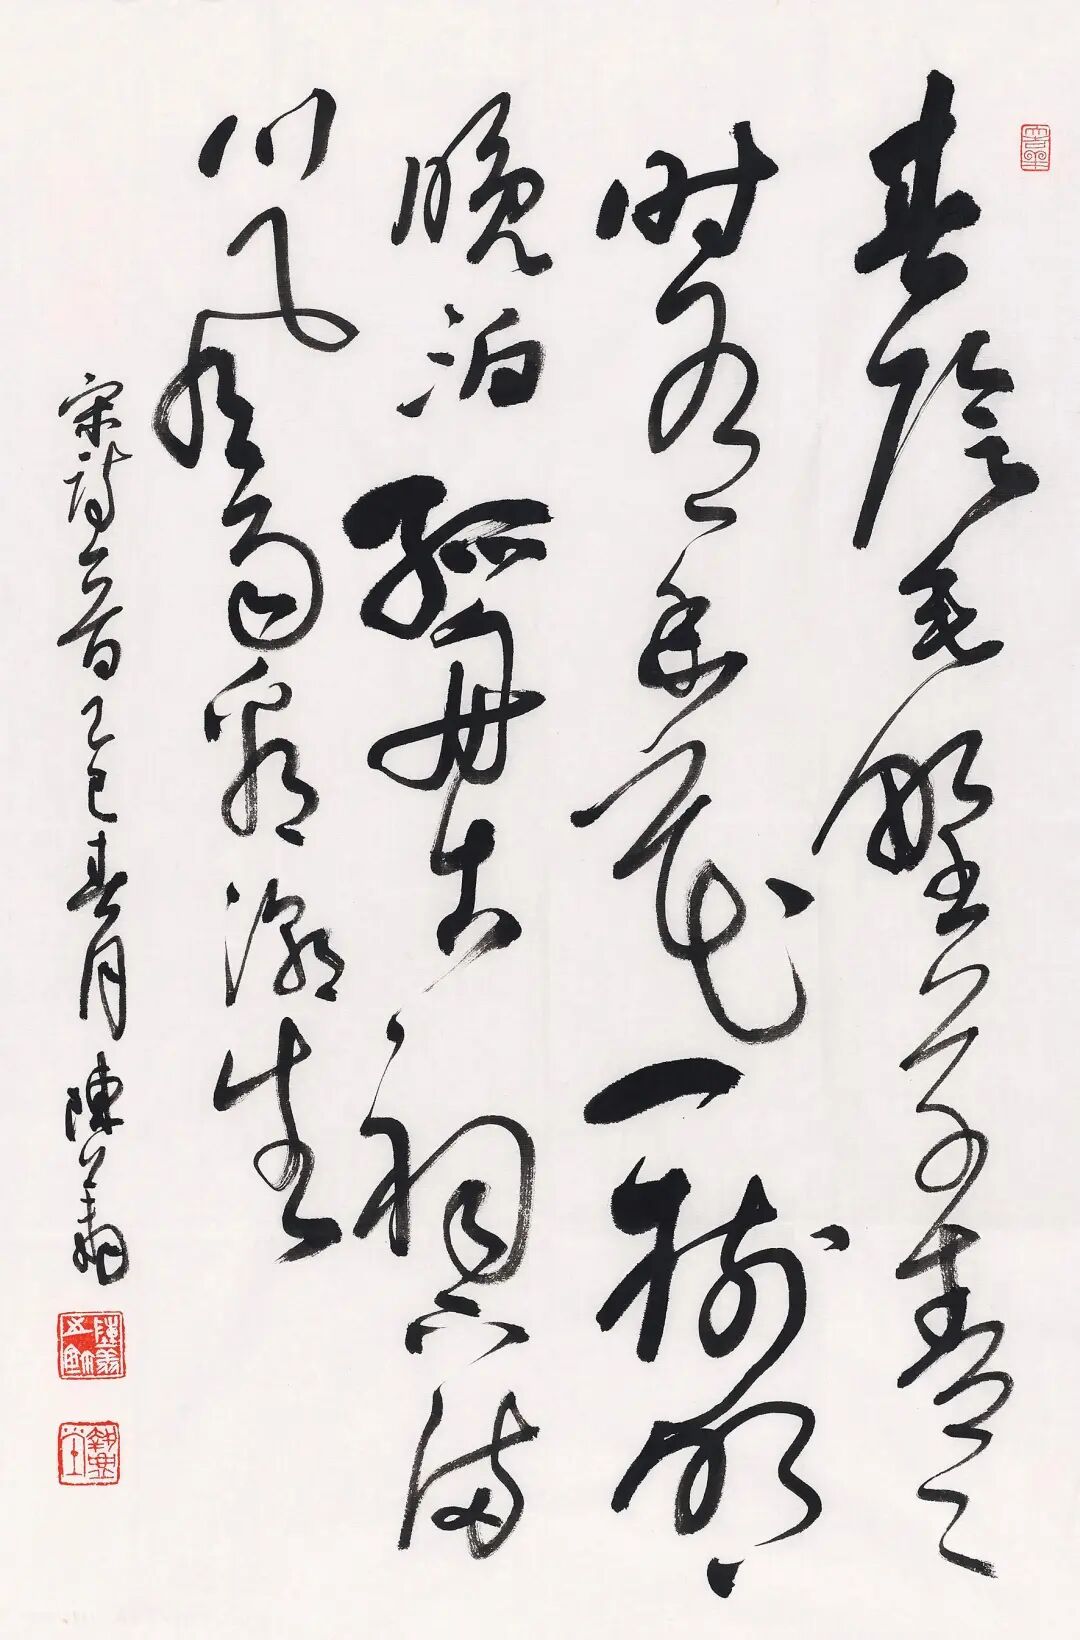 春陰垂野草青青
時有幽花一樹明
晚泊孤舟古祠下滿
川風雨看潮生
宋詩一首乙巳春月陳